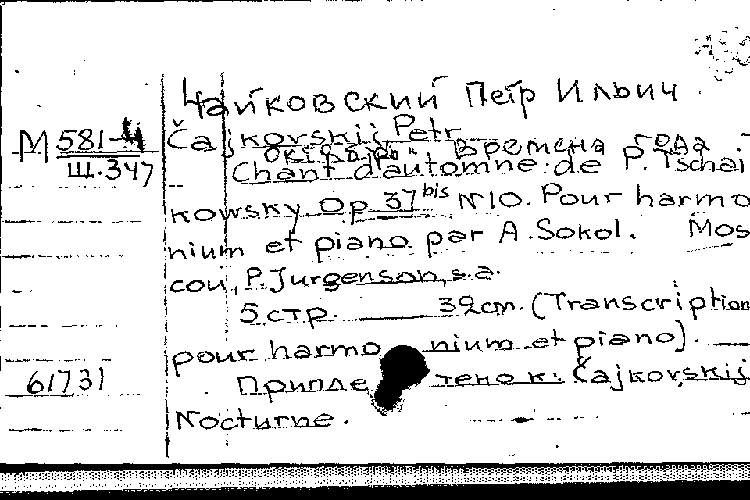 Чайковский Петр Ильич.
М 581-4
Ш.347
Čajkovskij Petr
"Октябрь" Времена года
Chant d'automne de P. Tschai
kowsky Op 37 bis N 10. Pour harmo
nium et piano par A. Sokol. Mos
cou, P. Jurgenson, s.a.
5 стр. 32 cm. (Transcription
pour harmonium et piano).
61731
Приплетено к: Čajkovskij
Nocturne.